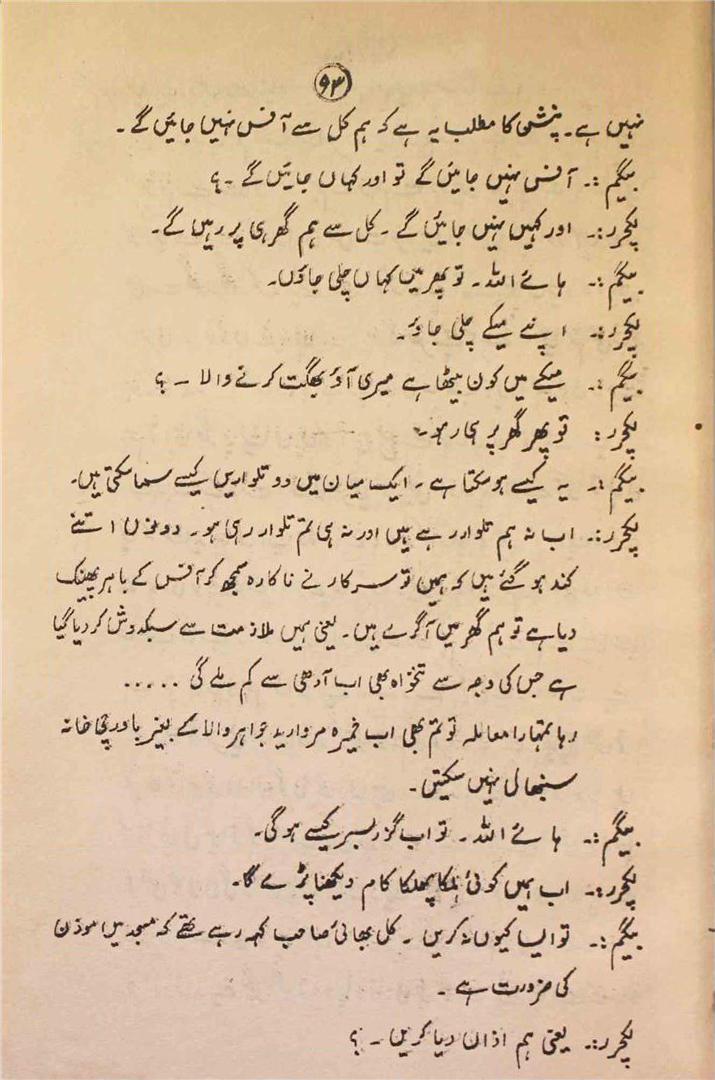 ۹۳
نہیں ہے۔ پنشن کا مطلب یہ ہے کہ ہم کل سے آفس نہیں جائیں گے۔
بیگم :۔ آفس نہیں جائیں گے تو اور کہاں جائیں گے ۔؟
لکچرر :۔ اور کہیں نہیں جائیں گے ۔ کل سے ہم گھر ہی پر رہیں گے۔
بیگم :۔ ہائے اللہ ۔ تو پھر میں کہاں چلی جاؤں۔
لکچرر :۔ اپنے میکے چلی جاؤ۔
بیگم :۔ میکے میں کون بیٹھا ہے میری آؤ بھگت کرنے والا ۔ ؟
لکچرر : تو پھر گھر پر ہی رہو۔
بیگم :۔ یہ کیسے ہو سکتا ہے ۔ ایک میان میں دو تلواریں کیسے سما سکتی ہیں۔
لکچرر :۔ اب نہ ہم تلوار رہے ہیں اور نہ ہی تم تلوار رہی ہو۔ دونوں اتنے
کند ہو گئے ہیں کہ ہمیں تو سرکار نے ناکارہ سمجھ کر آفس کے باہر پھینک
دیا ہے تو ہم گھر میں آگرے ہیں۔ یعنی ہمیں ملازمت سے سبکدوش کر دیا گیا
ہے جس کی وجہ سے تنخواہ بھی اب آدھی سے کم ملے گی ۔۔۔۔۔
رہا تمہارا معاملہ تو تم بھی اب خمیرہ مروارید جواہر والا کے بغیر باورچی خانہ
سنبھالی نہیں سکتیں۔
بیگم :۔ ہائے اللہ ۔ تو اب گزر بسر کیسے ہوگی۔
لکچرر :۔ اب ہمیں کوئی ہلکا پھلکا کام دیکھنا پڑے گا۔
بیگم :۔ تو ایسا کیوں نہ کریں ۔ کل بھائی صاحب کہہ رہے تھے کہ مسجد میں موذن
کی ضرورت ہے ۔
لکچرر :۔ یعنی ہم اذان دیا کریں ۔ ؟